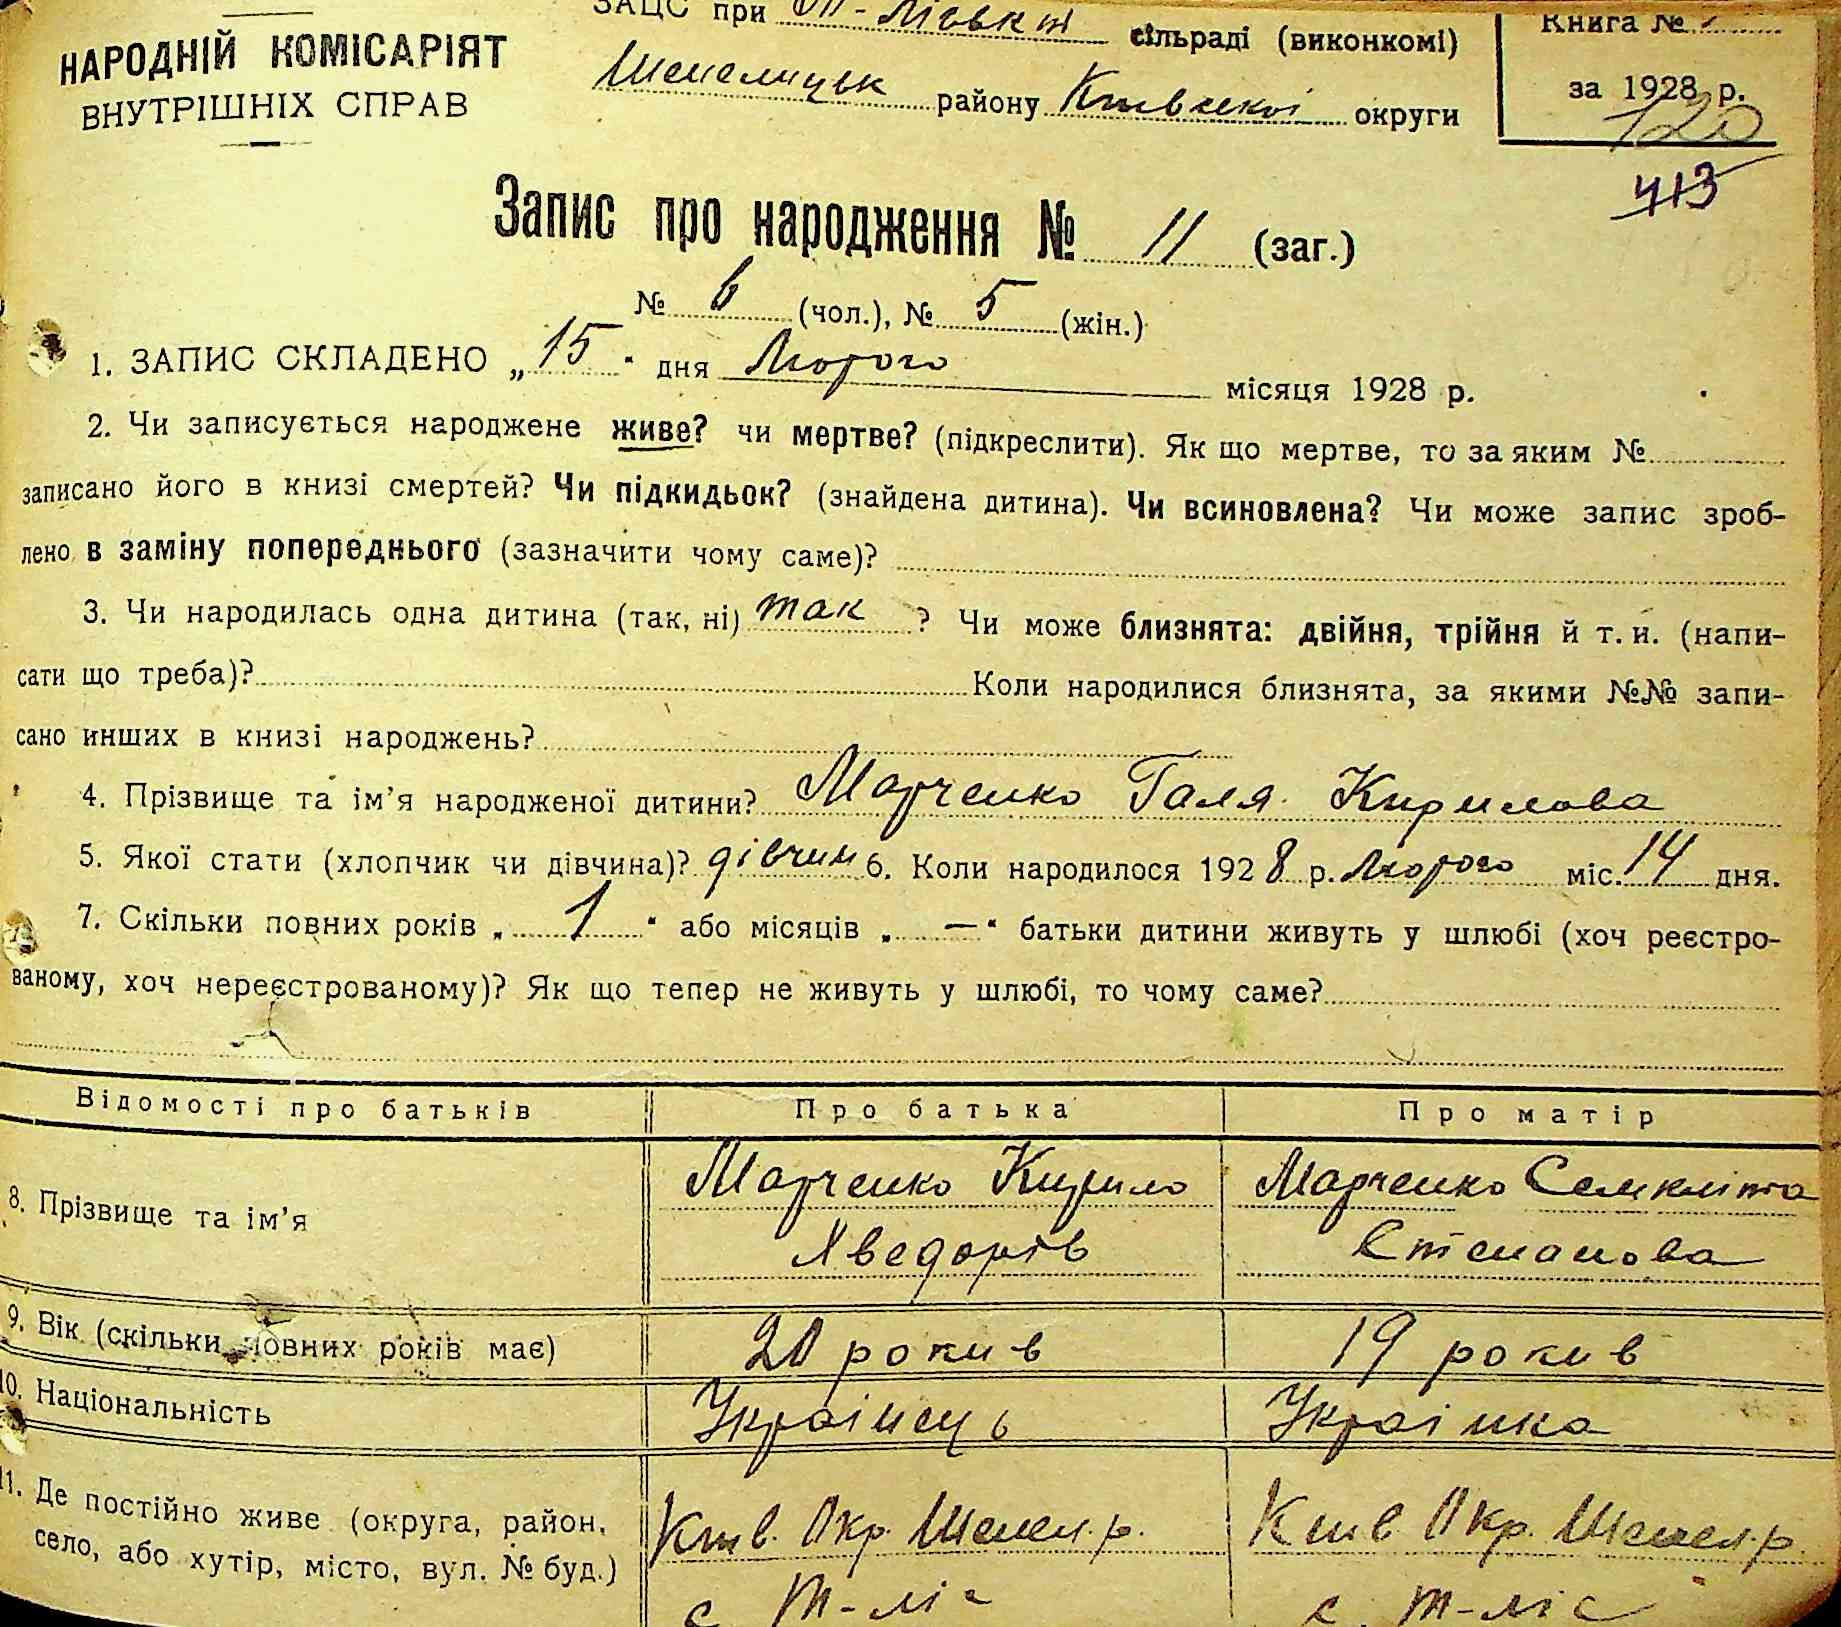 НАРОДНІЙ КОМІСАРІЯТ
ВНУТРІШНІХ СПРАВ
ЗАЦС при Т-Ліськт сільраді (виконкомі)
Шепелицьк району Київської округи
Книга №
за 1928 р.
120
713
Запис про народження № 11 (заг.)
№ 6 (чол.), № 5 (жін.)
1. ЗАПИС СКЛАДЕНО „15“ дня Лютого місяця 1928 р.
2. Чи записується народжене живе? чи мертве? (підкреслити). Як що мертве, то за яким №
записано його в книзі смертей? Чи підкидьок? (знайдена дитина). Чи всиновлена? Чи може запис зроб-
лено в заміну попереднього (зазначити чому саме)?
3. Чи народилась одна дитина (так, ні) так ? Чи може близнята: двійня, трійня й т. и. (напи-
сати що треба)? Коли народилися близнята, за якими №№ запи-
сано инших в книзі народжень?
4. Прізвище та ім'я народженої дитини? Марченко Галя Кирилова
5. Якої стати (хлопчик чи дівчина)? дівчин 6. Коли народилося 1928 р. Лютого міс. 14 дня.
7. Скільки повних років „1“ або місяців „—“ батьки дитини живуть у шлюбі (хоч реєстро-
ваному, хоч нереєстрованому)? Як що тепер не живуть у шлюбі, то чому саме?
Відомості про батьків Про батька Про матір
8. Прізвище та ім'я
Марченко Кирило Марченко
Хведорів Степанова
9. Вік (скільки повних років має) 20 рокив 19 рокив
10. Національність Украінець Украінка
11. Де постійно живе (округа, район, село, або хутір, місто, вул. № буд.)
Киів. Окр. Шепел. р. Киів Окр. Шепел. р.
с Т-ліс с. Т-ліс